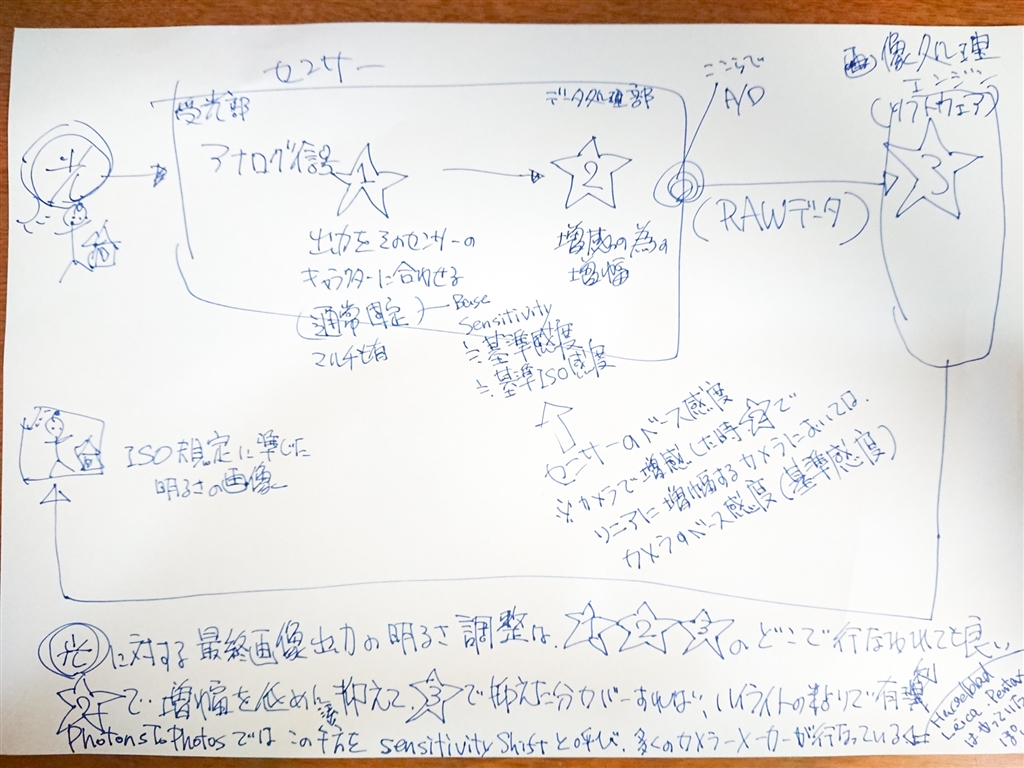 センサー
受光部
データ処理部
ここらで
A/D
画像処理
エンジン
(ソフトウェア)
光
アナログ信号
1
2
3
(RAWデータ)
出力をそのセンサーの
キャラクターに合わせる
(通常固定)
マルチも有
増感の為の
増幅
Base
Sensitivity
≒基準感度
≒基準ISO感度
センサーのベース感度
※カメラで増感した時2で
リニアに増幅するカメラにおいては、
カメラのベース感度(基準感度)
ISO規定に準じた
明るさの画像
光に対する最終画像出力の明るさ調整は、1 2 3のどこで行なわれても良い
2で増幅を低めに抑えて、3で抑えた分カバーすれば、ハイライトの粘りで有利
PhotonsToPhotosではこの手法をsensitivity Shiftと呼び、多くのカメラメーカーが行なっている
Hasselblad
Leica、Pentax
はやっていない